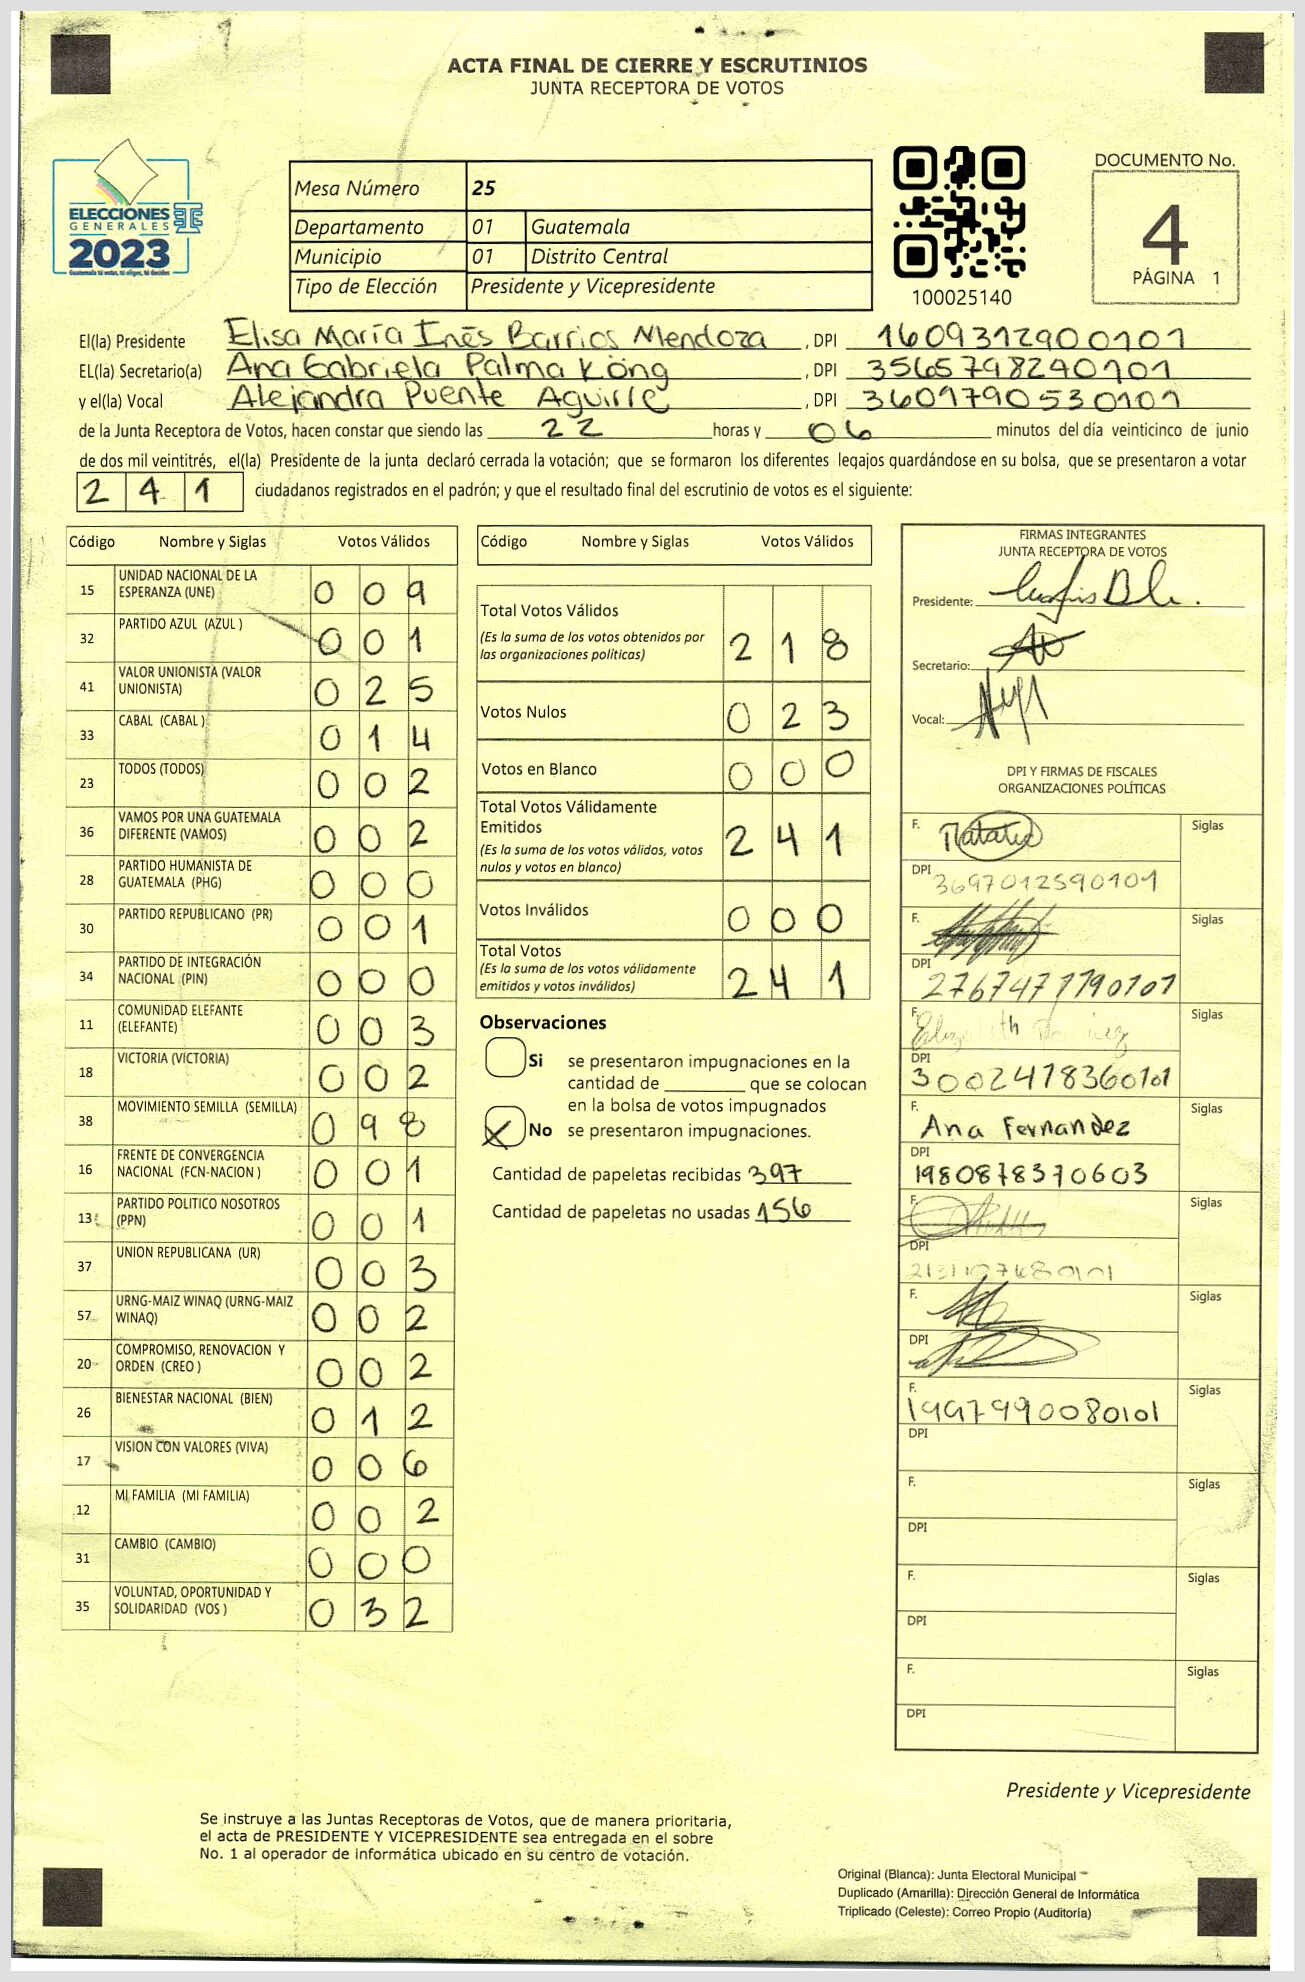 ACTA FINAL DE CIERRE Y ESCRUTINIOS
JUNTA RECEPTORA DE VOTOS
ELECCIONES
GENERALES
2023
Guatemala tú votas, tú eliges, tú decides
Mesa Número 25
Departamento 01 Guatemala
Municipio 01 Distrito Central
Tipo de Elección Presidente y Vicepresidente
100025140
DOCUMENTO No.
4
PÁGINA 1
El(la) Presidente Elisa María Inés Barrios Mendoza , DPI 1609312900101
EL(la) Secretario(a) Ana Gabriela Palma Köng , DPI 3565798240101
y el(la) Vocal Alejandra Puente Aguirre , DPI 3601790530101
de la Junta Receptora de Votos, hacen constar que siendo las 22 horas y 06 minutos del día veinticinco de junio
de dos mil veintitrés, el(la) Presidente de la junta declaró cerrada la votación; que se formaron los diferentes legajos guardándose en su bolsa, que se presentaron a votar
241 ciudadanos registrados en el padrón; y que el resultado final del escrutinio de votos es el siguiente:
Código Nombre y Siglas Votos Válidos
15 UNIDAD NACIONAL DE LA
ESPERANZA (UNE) 009
32 PARTIDO AZUL (AZUL ) 001
41 VALOR UNIONISTA (VALOR
UNIONISTA) 025
33 CABAL (CABAL ) 014
23 TODOS (TODOS) 002
36 VAMOS POR UNA GUATEMALA
DIFERENTE (VAMOS) 002
28 PARTIDO HUMANISTA DE
GUATEMALA (PHG) 000
30 PARTIDO REPUBLICANO (PR) 001
34 PARTIDO DE INTEGRACIÓN
NACIONAL (PIN) 000
11 COMUNIDAD ELEFANTE
(ELEFANTE) 003
18 VICTORIA (VICTORIA) 002
38 MOVIMIENTO SEMILLA (SEMILLA) 098
16 FRENTE DE CONVERGENCIA
NACIONAL (FCN-NACION ) 001
13 PARTIDO POLITICO NOSOTROS
(PPN) 001
37 UNION REPUBLICANA (UR) 003
57 URNG-MAIZ WINAQ (URNG-MAIZ
WINAQ) 002
20 COMPROMISO, RENOVACION Y
ORDEN (CREO ) 002
26 BIENESTAR NACIONAL (BIEN) 012
17 VISION CON VALORES (VIVA) 006
12 MI FAMILIA (MI FAMILIA) 002
31 CAMBIO (CAMBIO) 000
35 VOLUNTAD, OPORTUNIDAD Y
SOLIDARIDAD (VOS ) 032
Código Nombre y Siglas Votos Válidos
Total Votos Válidos
(Es la suma de los votos obtenidos por
las organizaciones políticas) 218
Votos Nulos 023
Votos en Blanco 000
Total Votos Válidamente
Emitidos 241
(Es la suma de los votos válidos, votos
nulos y votos en blanco)
Votos Inválidos 000
Total Votos
(Es la suma de los votos válidamente
emitidos y votos inválidos) 241
Observaciones
Si se presentaron impugnaciones en la
cantidad de ________ que se colocan
en la bolsa de votos impugnados
X No se presentaron impugnaciones.
Cantidad de papeletas recibidas 397
Cantidad de papeletas no usadas 156
FIRMAS INTEGRANTES
JUNTA RECEPTORA DE VOTOS
Presidente:
Secretario:
Vocal:
DPI Y FIRMAS DE FISCALES
ORGANIZACIONES POLÍTICAS
F. Siglas
DPI 3697012590101
F. Siglas
DPI 2767471790101
F. Elizabeth Siglas
DPI 3002478360101
F. Ana Fernandez Siglas
DPI 1980878370603
F. Siglas
DPI
F. Siglas
DPI
F. 1997990080101 Siglas
DPI
F. Siglas
DPI
F. Siglas
DPI
F. Siglas
DPI
Presidente y Vicepresidente
Se instruye a las Juntas Receptoras de Votos, que de manera prioritaria,
el acta de PRESIDENTE Y VICEPRESIDENTE sea entregada en el sobre
No. 1 al operador de informática ubicado en su centro de votación.
Original (Blanca): Junta Electoral Municipal
Duplicado (Amarilla): Dirección General de Informática
Triplicado (Celeste): Correo Propio (Auditoría)